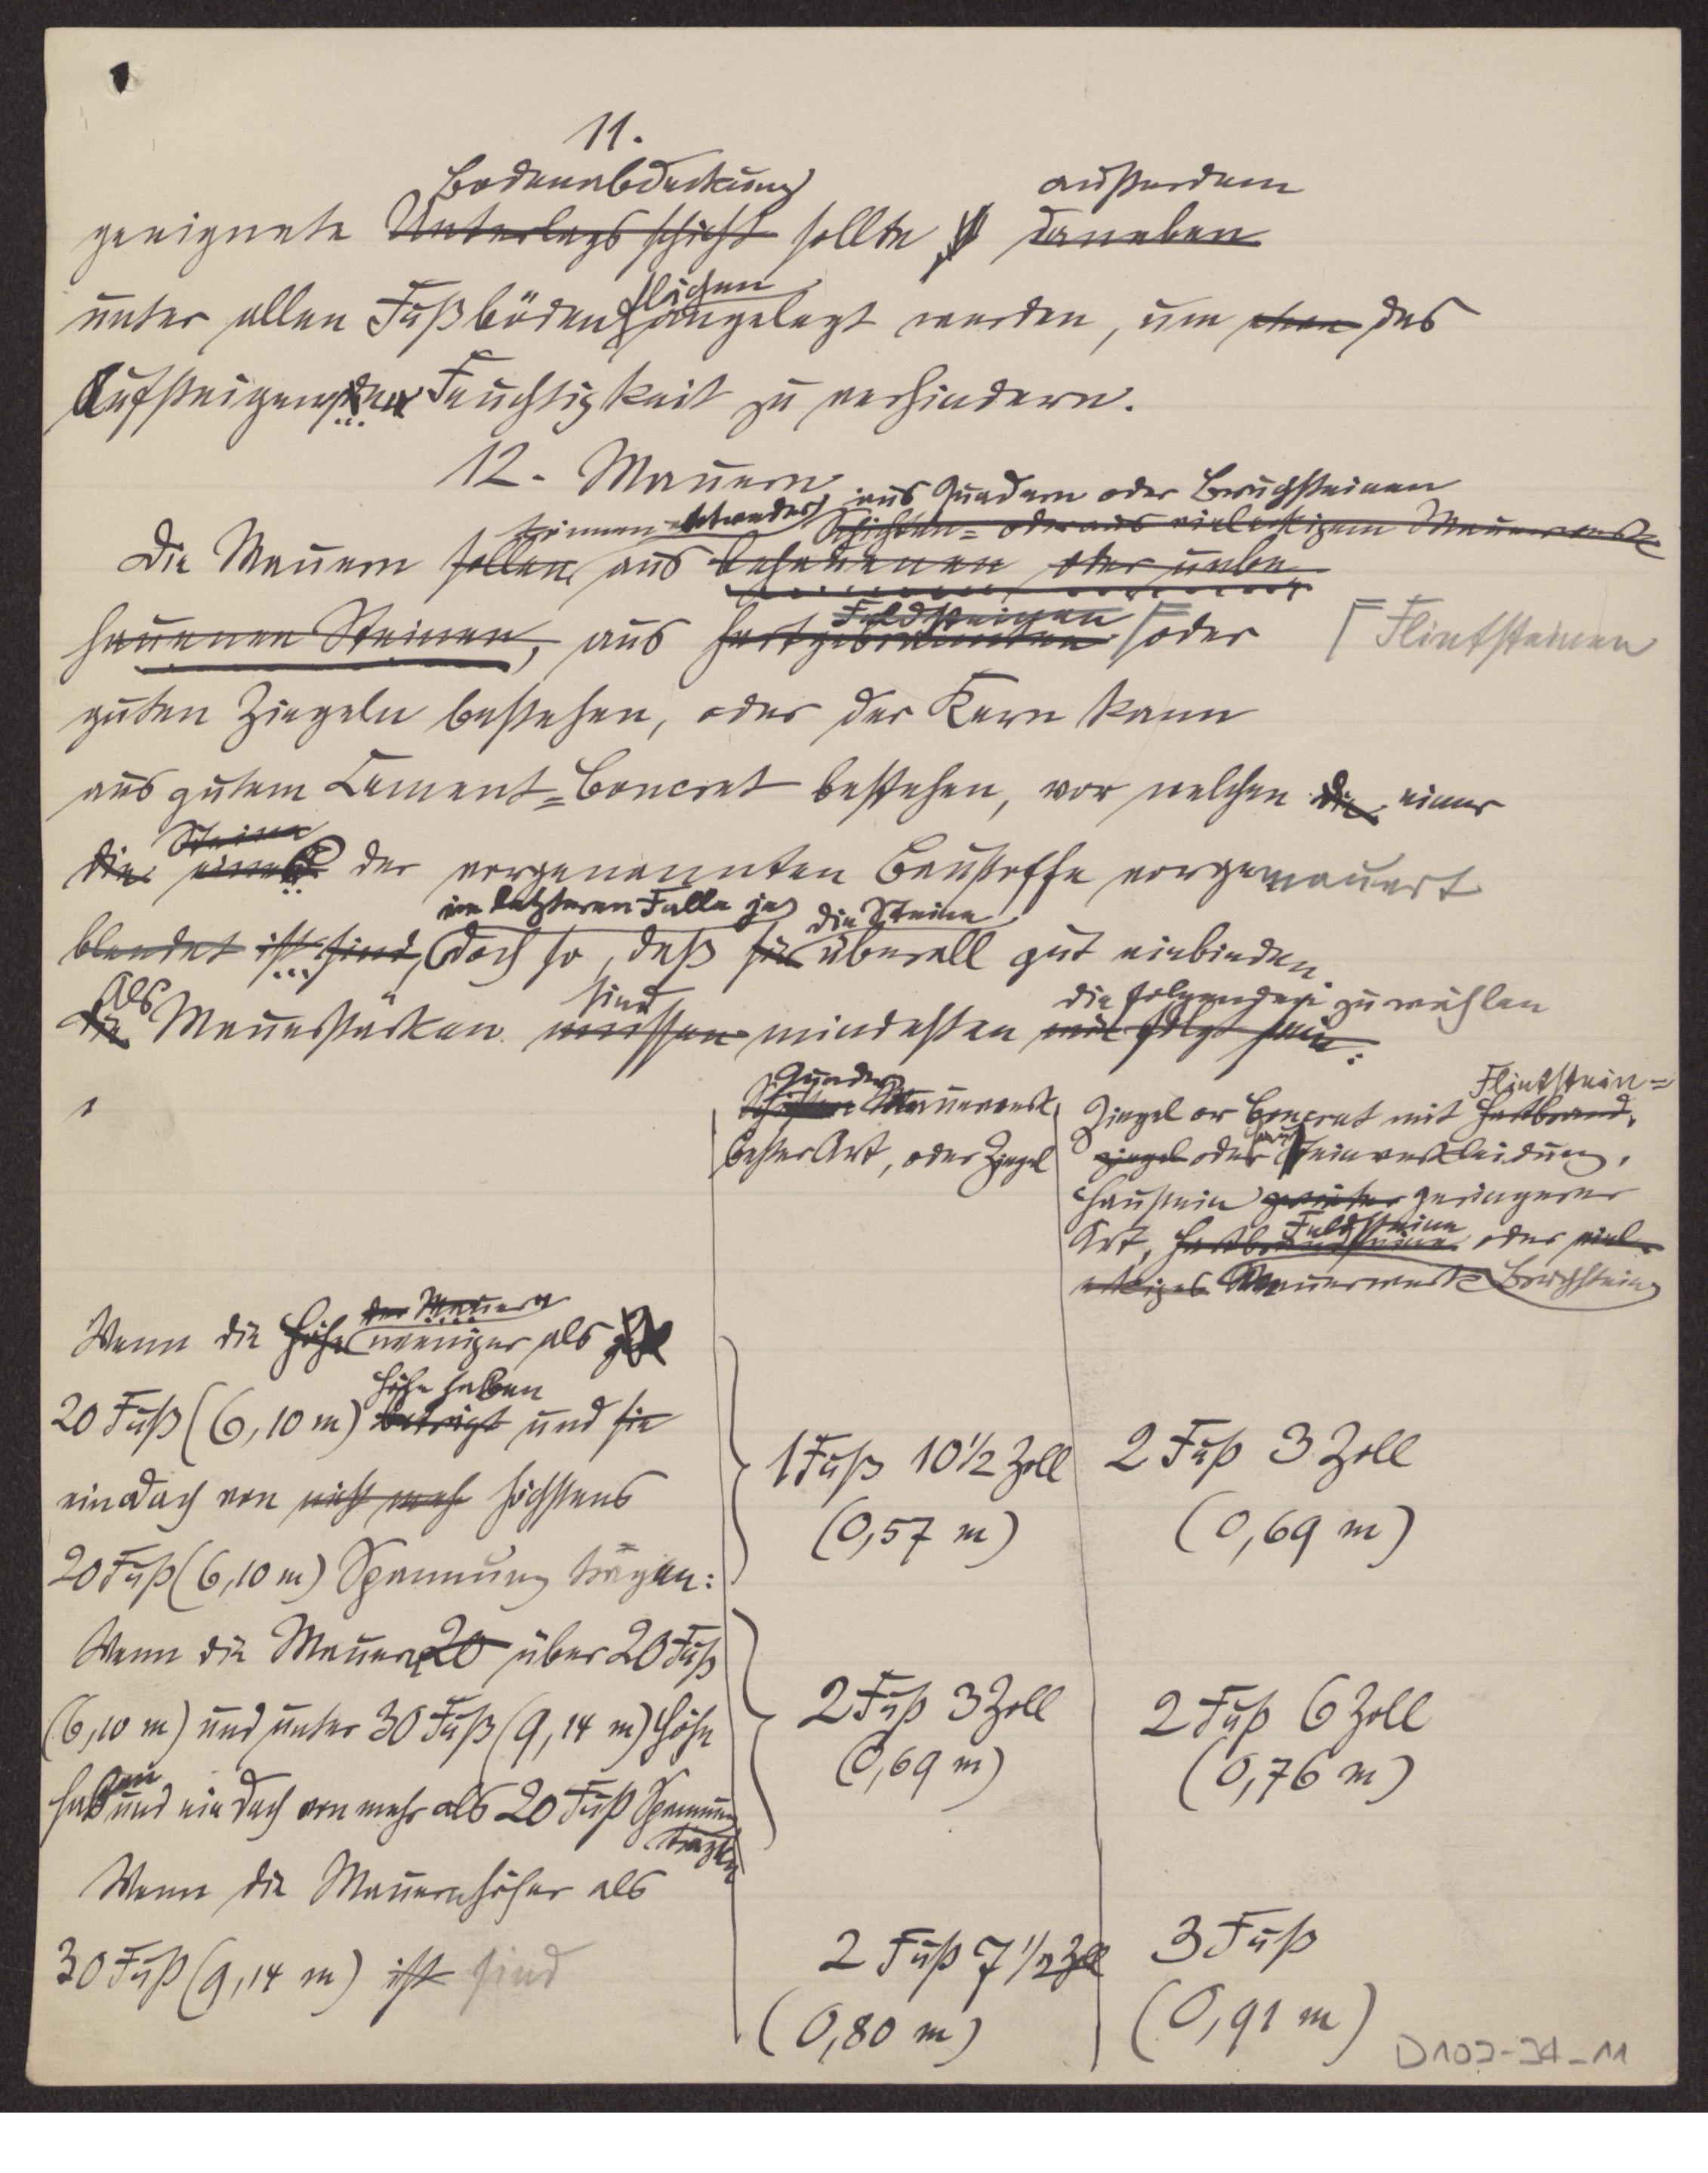 11.
Bodenabdeckung außerdem
geeignete Unterlagsschicht sollte daneben
flächen
unter allen Fußböden angelegt werden, um das
Aufsteigen der Feuchtigkeit zu verhindern.
12. Mauern
aus Quadern oder Bruchsteinen
können entweder Schichten= oder aus vieleckigem Mauerwerk
Die Mauern sollen aus behauenen oder unbe
Feldsteinen
hauenen Steinen, aus hartgebrannten oder Flintsteinen
guten Ziegeln bestehen, oder der Kern kann
aus gutem Cement=Concret bestehen, vor welchen die einer
Steine
die einer der vorgenannten Baustoffe vorgemauert
im letzteren Falle je die Steine
blendet ist sind, doch so, daß sie überall gut einbinden.
Als sind die folgenden zu wählen
die Mauerstärken müssen mindesten wie folgt sein:
Quader
Schichten Mauerwerk
bester Art, oder Ziegel
Flintstein=
Ziegel or Concret mit Hartbrand,
ziegel oder Hausteinverkleidung,
Haustein geringerer
Feldsteine
Art, Hartbrandsteine oder viel
eckiges Mauerwerk Bruchstein
der Mauern
Wenn die Höhe weniger als
Höhe haben
20 Fuß (6,10 m) beträgt und sie
ein Dach von nicht mehr höchstens
20 Fuß (6,10 m) Spannung tragen:
1 Fuß 10 1/2 Zoll
(0,57 m)
2 Fuß 3 Zoll
(0,69 m)
Wenn die Mauern 20 über 20 Fuß
(6,10 m) und unter 30 Fuß (9,14 m) Höhe
haben und ein Dach von mehr als 20 Fuß Spannung
tragen
2 Fuß 3 Zoll
(0,69 m)
2 Fuß 6 Zoll
(0,76 m)
Wenn die Mauern höher als
30 Fuß (9,14 m) ist sind
2 Fuß 7 1/2 Zoll
(0,80 m)
3 Fuß
(0,91 m)
D102-34-11